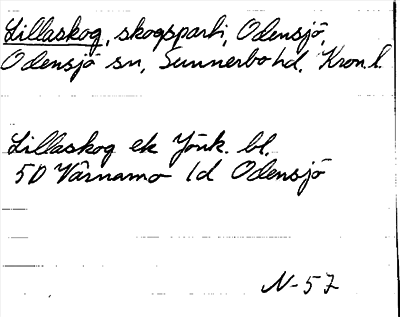 Lillaskog, skogsparti, Odensjö,
Odensjö sn, Sunnerbo hd, Kron.l.
Lillaskog ek Jönk. bl.
5D Värnamo 1d Odensjö
N-57